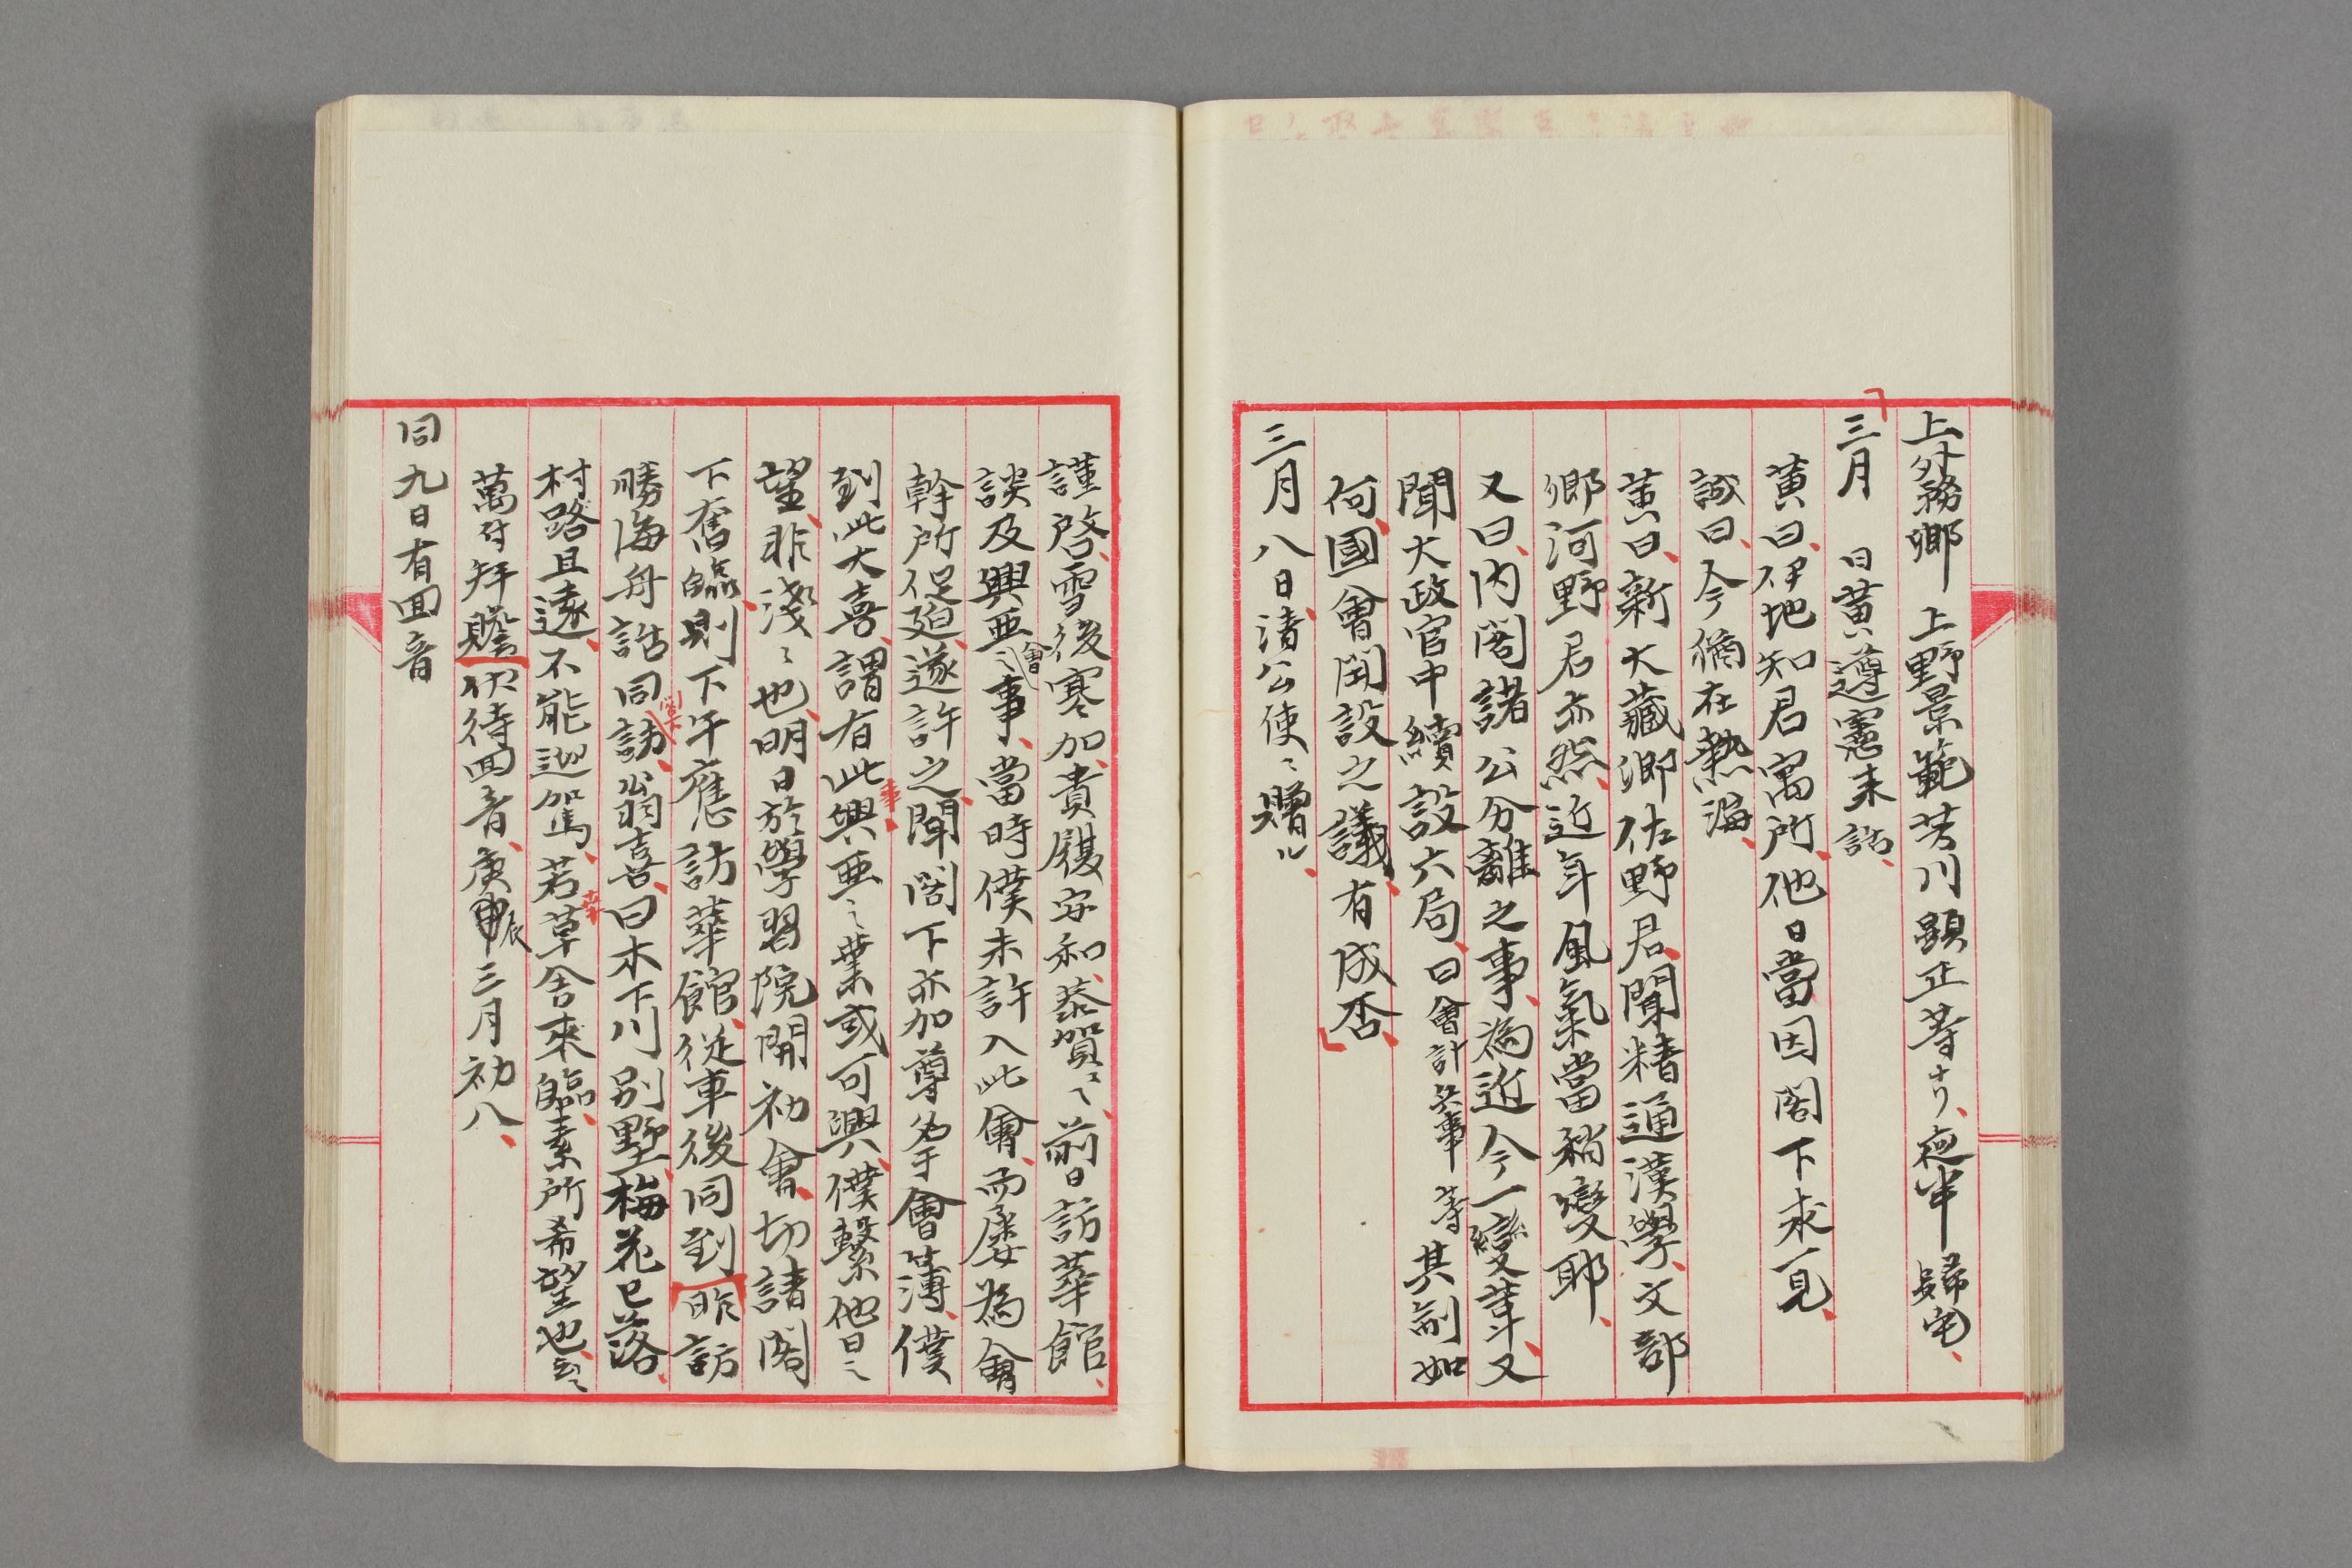 上外務卿　上野景範芳川顕正等ナリ、夜半歸宅、
三月　日黄遵憲来話、
黄曰、伊地知君寓所、他日當因閣下求一見、
誠曰、今猶在熱海、
黄曰、新大藏卿佐野君、聞精通漢學、文部
卿河野君亦然、近年風氣當稍變耶、
又曰、内閣諸公分離之事、為近今一變革、又
聞大政官中續設六局、曰會計兵事等其制如
何、國會開設之議、有成否、
三月八日清公使ニ贈ル、
謹啓、雪後寒加、貴履安和、恭賀々々、前日訪華館、
談及興亜會事、當時僕未許入此會、而屡為會
幹所促迫、遂許之、聞閣下亦加尊名于會簿、僕
到此大喜、謂有此興亜之業或可興、僕繋他日之
望、非淺々也、明日於學習院開初會、切請閣
下奮臨、則下午應訪華館、從車後同到、昨訪
勝海舟話同訪、翁喜、曰木下川別野、梅花已落、
村路且遠、不能迎駕、若草舎來臨、素所希望也、云々
萬付拜瞻、伏待回音、庚辰三月初八、
同九日有回音